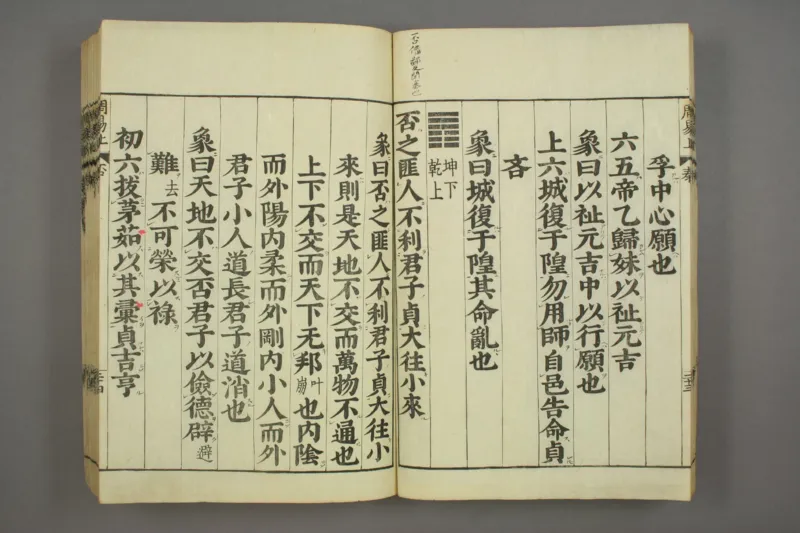 周易上
泰
二十三
孚中心願也
六五帝乙歸妹以祉元吉
象曰以祉元吉中以行願也
上六城復于隍勿用師自邑告命貞
吝
象曰城復于隍其命亂也
坤下
乾上
否之匪人不利君子貞大往小來
彖曰否之匪人不利君子貞大往小
來則是天地不交而萬物不通也
上下不交而天下无邦叶崩也內陰
而外陽內柔而外剛內小人而外
君子小人道長君子道消也
象曰天地不交否君子以儉德辟避
難去不可榮以祿
初六拔茅茹以其彙貞吉亨
周易上
否
二十四